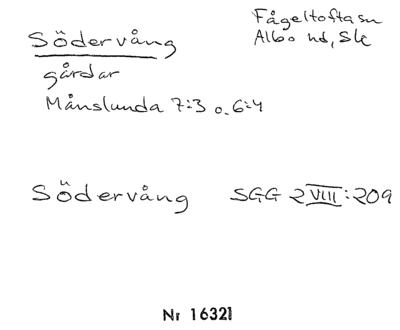 Södervång
Fågeltofta sn
Albo hd, Sk
gårdar
Månslunda 7:3 o. 6:4
Södervång SGG 2 VIII:209
Nr 16321